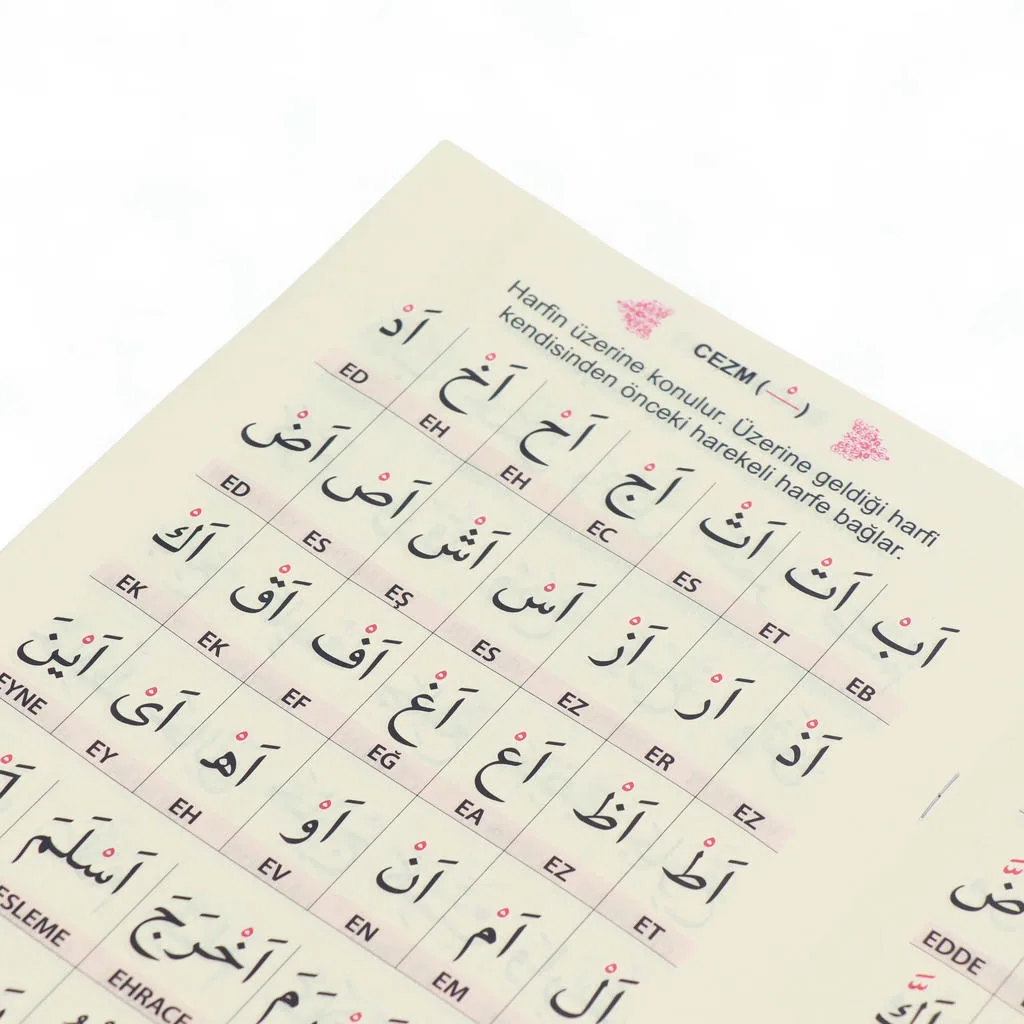 CEZM (ـْـ)
Harfin üzerine konulur. Üzerine geldiği harfi
kendisinden önceki harekeli harfe bağlar.
اَبْ اَتْ اَثْ اَجْ اَحْ اَخْ اَدْ
EB ET ES EC EH EH ED
اَذْ اَرْ اَزْ اَسْ اَشْ اَصْ اَضْ
EZ ER EZ ES EŞ ES ED
اَطْ اَظْ اَعْ اَغْ اَفْ اَقْ اَكْ
ET EZ EA EĞ EF EK EK
اَلْ اَمْ اَنْ اَوْ اَهْ اَىْ اَيْنَ
EM EN EV EH EY EYNE
اَخْرَجَ اَسْلَمَ
EHRACE ESLEME
EDDE